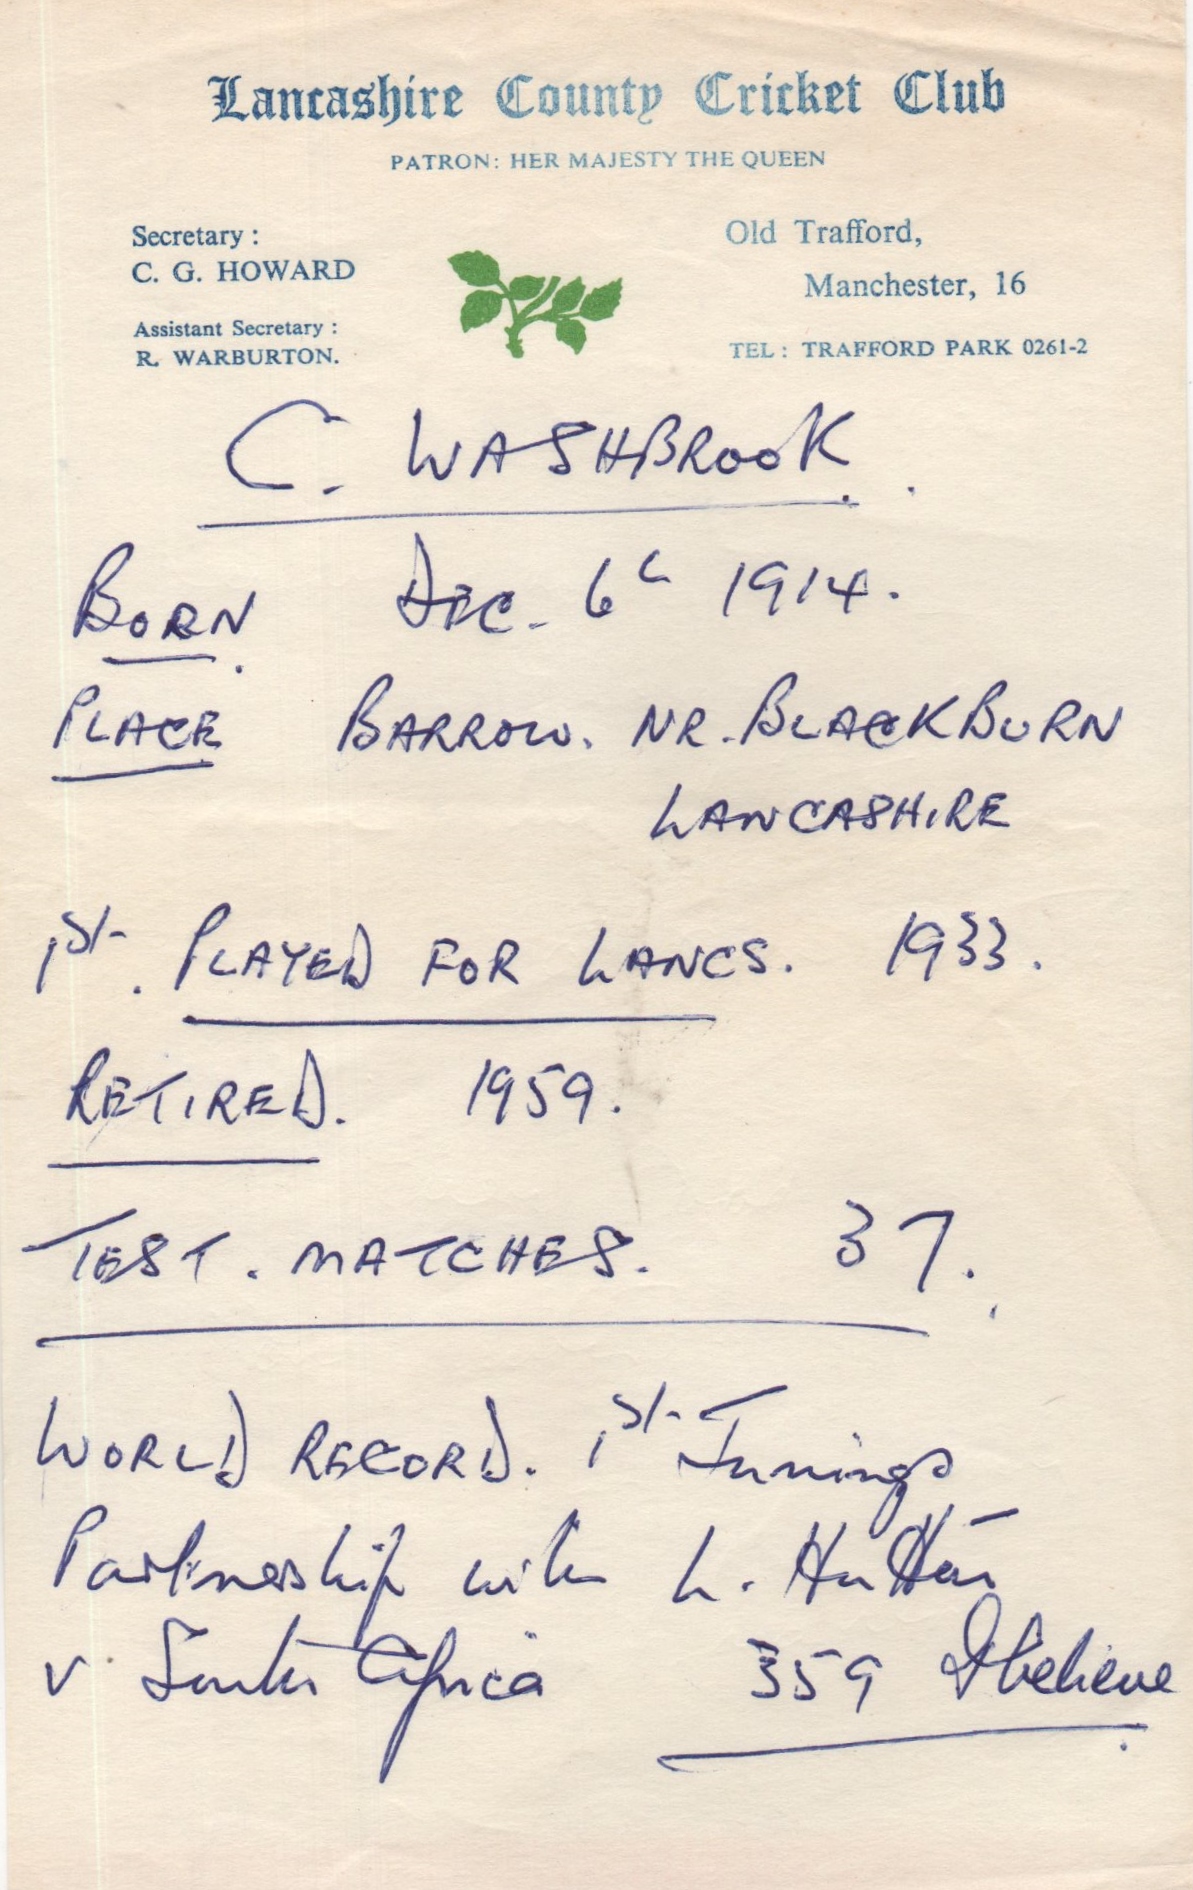 Lancashire County Cricket Club
PATRON: HER MAJESTY THE QUEEN
Secretary:
C. G. HOWARD
Assistant Secretary:
R. WARBURTON.
Old Trafford,
Manchester, 16
TEL: TRAFFORD PARK 0261-2
C. WASHBROOK.
BORN. DEC. 6th 1914.
PLACE BARROW. NR. BLACKBURN
LANCASHIRE
1st. PLAYED FOR LANCS. 1933.
RETIRED. 1959.
TEST. MATCHES. 37.
WORLD RECORD. 1st Innings
Partnership with L. Hutton
v. South Africa 359 I believe.